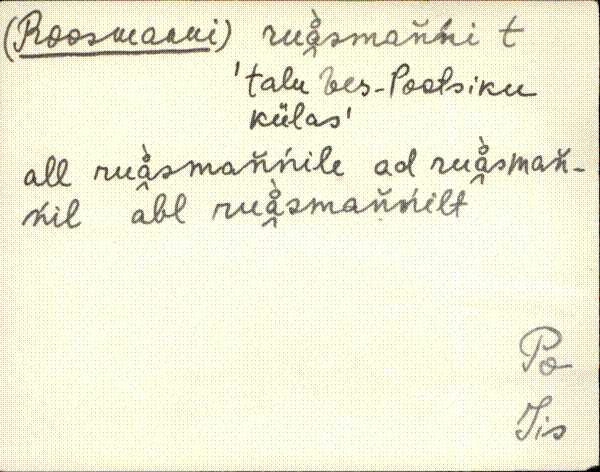 (Roosmanni) ruåsmañńi t
'talu Ves-Pootsiku
külas'
all ruåsmañńile ad ruåsmañ-
ńil abl ruåsmañńilt
Po
Jis